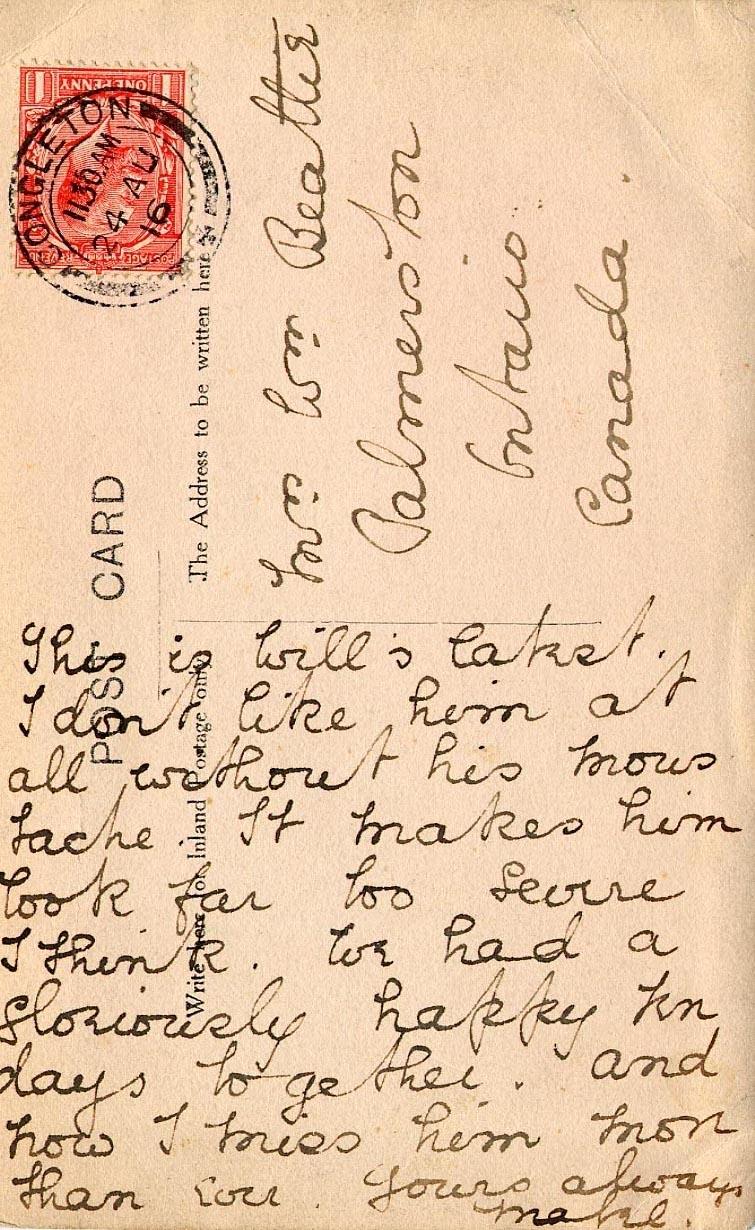 ONE PENNY
1 1
POSTAGE REVENUE
CONGLETON
11 30 AM
24 AU
16
POST CARD
The Address to be written here
Write here for Inland Postage only
Mrs Wm Beattie
Palmerston
Ontario
Canada.
This is Will's latest.
I don't like him at
all without his mous
tache. It makes him
look far too severe
I think. We had a
gloriously happy ten
days together. and
now I miss him more
than ever. Yours always
Mabel.